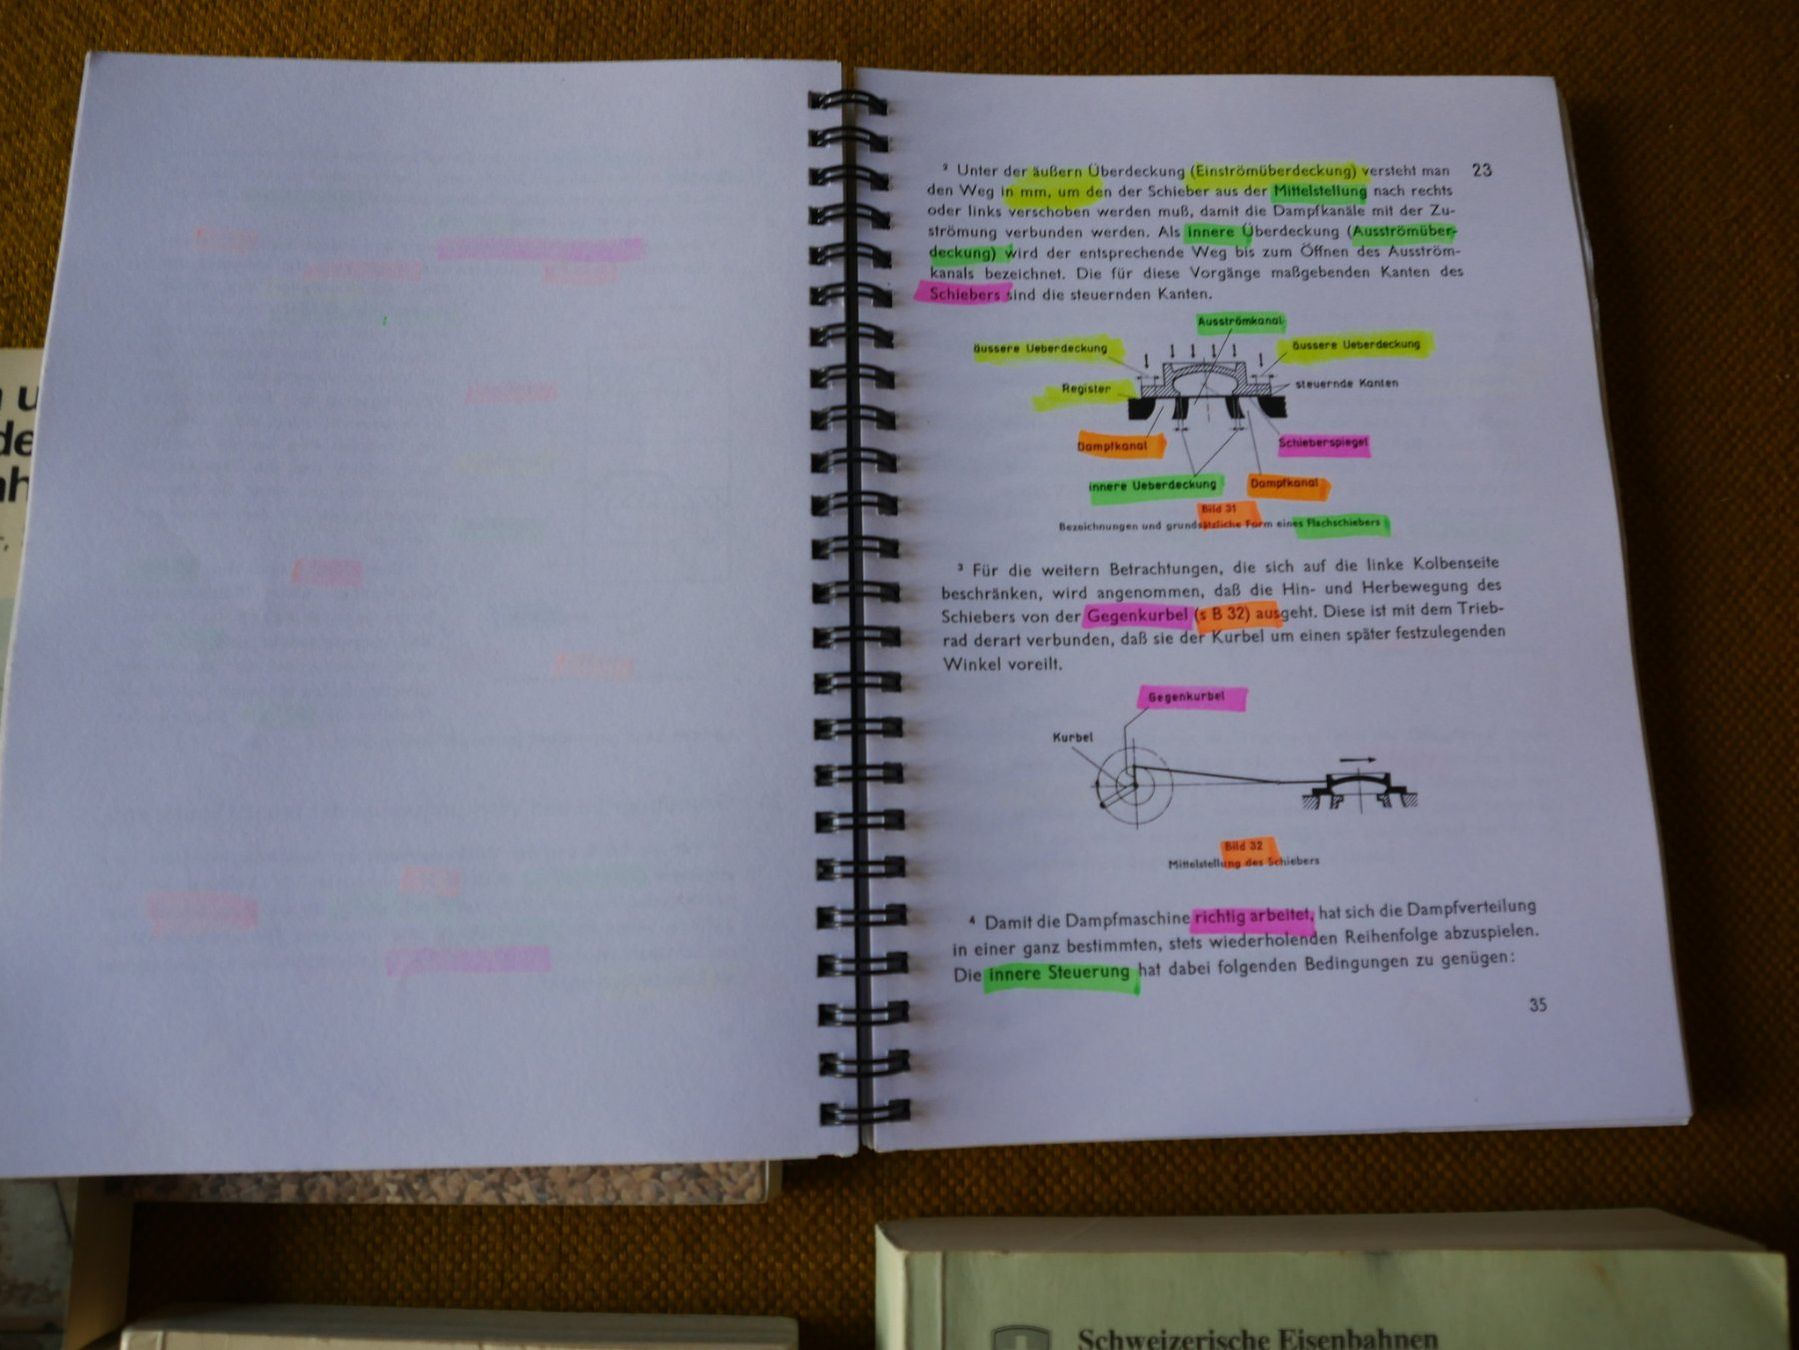 ² Unter der äußern Überdeckung (Einströmüberdeckung) versteht man 23
den Weg in mm, um den der Schieber aus der Mittelstellung nach rechts
oder links verschoben werden muß, damit die Dampfkanäle mit der Zu-
strömung verbunden werden. Als innere Überdeckung (Ausströmüber-
deckung) wird der entsprechende Weg bis zum Öffnen des Ausström-
kanals bezeichnet. Die für diese Vorgänge maßgebenden Kanten des
Schiebers sind die steuernden Kanten.
Ausströmkanal
äussere Ueberdeckung
äussere Ueberdeckung
Register
steuernde Kanten
Dampfkanal
Schieberspiegel
innere Ueberdeckung
Dampfkanal
Bild 31
Bezeichnungen und grundsätzliche Form eines Flachschiebers
³ Für die weitern Betrachtungen, die sich auf die linke Kolbenseite
beschränken, wird angenommen, daß die Hin- und Herbewegung des
Schiebers von der Gegenkurbel (s B 32) ausgeht. Diese ist mit dem Trieb-
rad derart verbunden, daß sie der Kurbel um einen später festzulegenden
Winkel voreilt.
Gegenkurbel
Kurbel
Bild 32
Mittelstellung des Schiebers
⁴ Damit die Dampfmaschine richtig arbeitet, hat sich die Dampfverteilung
in einer ganz bestimmten, stets wiederholenden Reihenfolge abzuspielen.
Die innere Steuerung hat dabei folgenden Bedingungen zu genügen:
35
Schweizerische Eisenbahnen